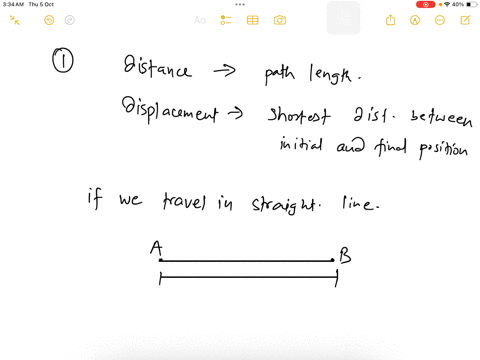 3:34 AM Thu 5 Oct
40%
Aa
1
Distance → path length.
Displacement → shortest dist. between
initial and final position
if we travel in straight. line.
A B